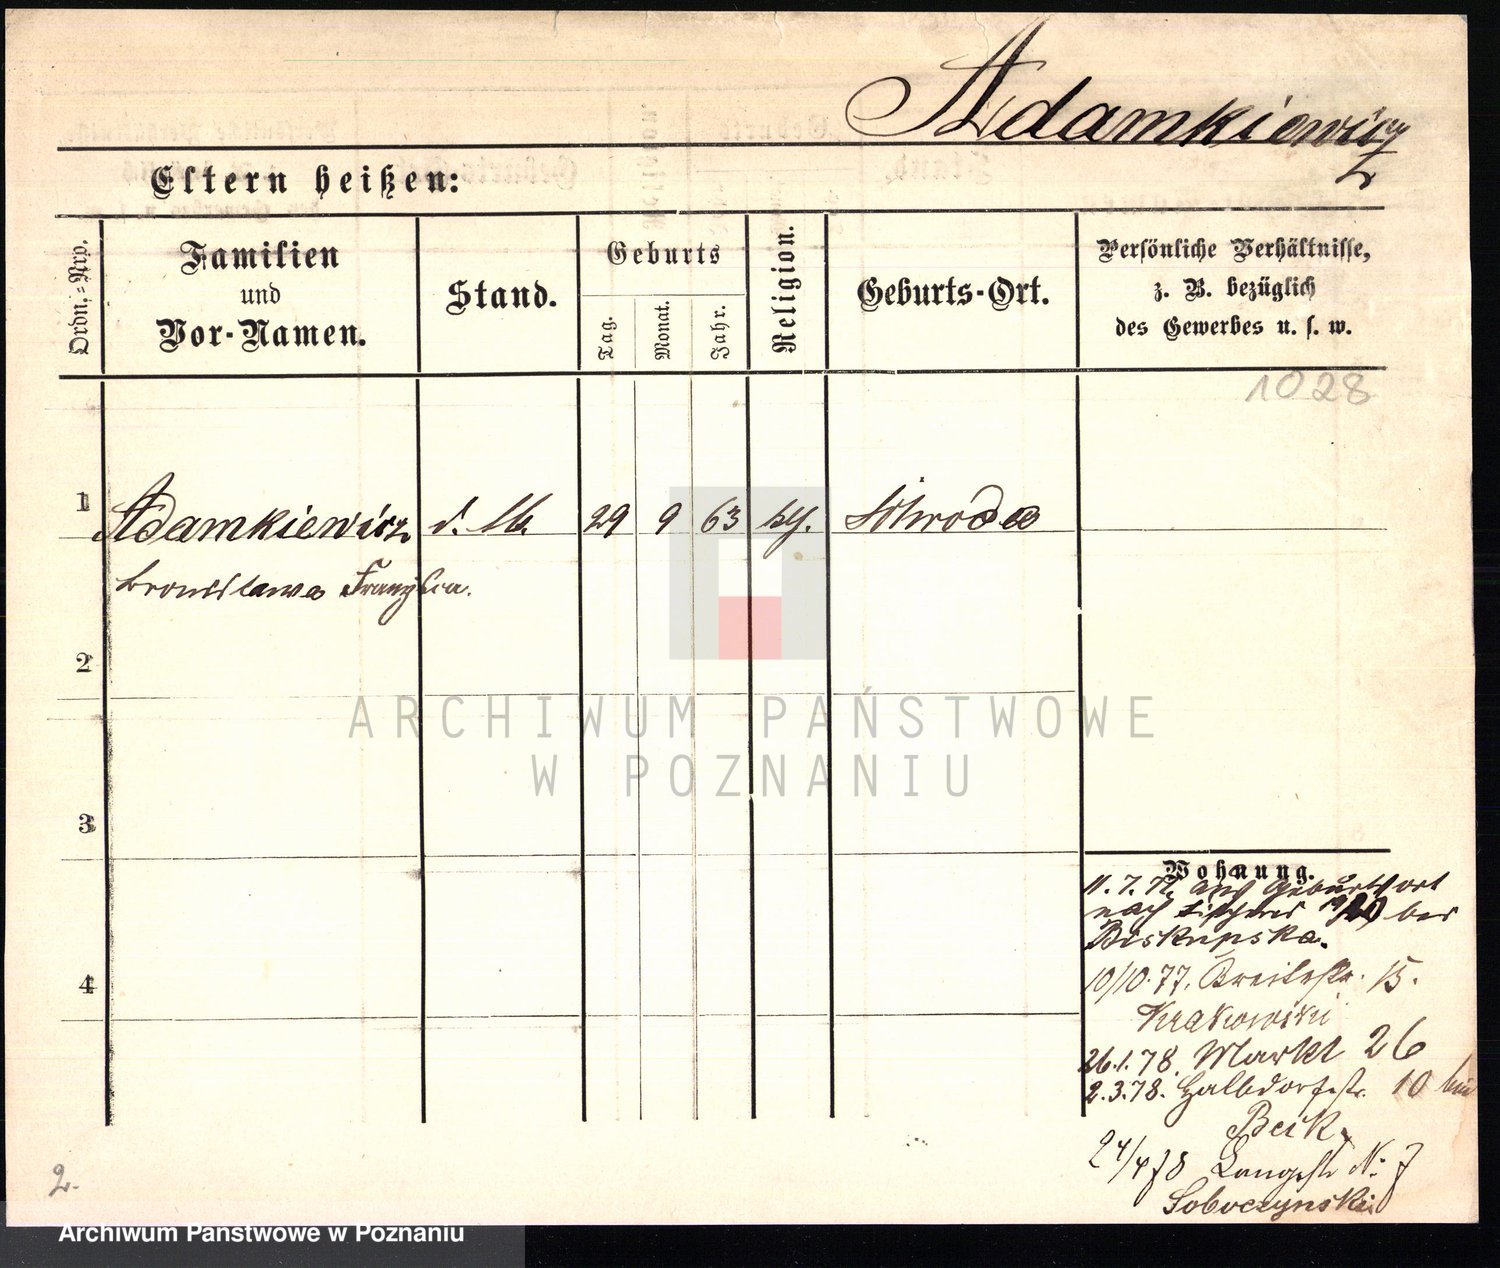 Adamkiewicz
Eltern heißen:
Ordn.-Nro.
Familien
und
Vor-Namen.
Stand.
Geburts
Tag.
Monat.
Jahr.
Religion.
Geburts-Ort.
Persönliche Verhältnisse,
z. B. bezüglich
des Gewerbes u. s. w.
1028
1 Adamkiewicz d. M. 29 9 63 kth. Schroda
Bronislawa Franziska.
2
3
4
Wohnung.
11. 7. 77. Geburtsort
nach 19/20 bei
Biskupska.
10/10. 77. Breitestr. 15.
Krakowski
26.1.78. Markt 26
2.3.78. Halbdorfstr. 10 bei
Beik.
24/4 78 Langestr No 7
Soboczynski
2.
ARCHIWUM PAŃSTWOWE
W POZNANIU
Archiwum Państwowe w Poznaniu